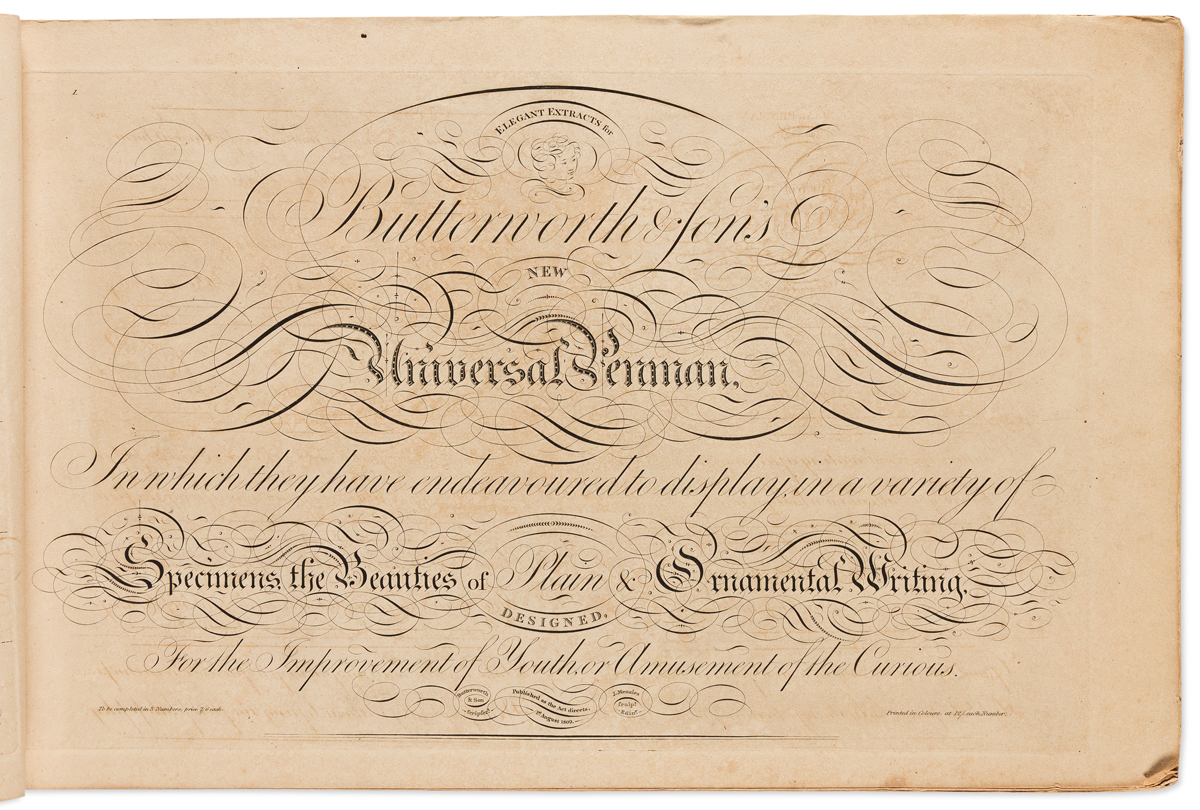 1.
ELEGANT EXTRACTS for
Butterworth & Son's
NEW
Universal Penman,
In which they have endeavoured to display, in a variety of
Specimens, the Beauties of Plain & Ornamental Writing,
DESIGNED,
For the Improvement of Youth, or Amusement of the Curious.
Butterworth & Son Scripsert.
Published as the Act directs, 1st August 1809.
J. Menzies Sculpt. Edinr.
To be completed in 8 Numbers, price 7/6 each.
Printed in Colours, at each Number.